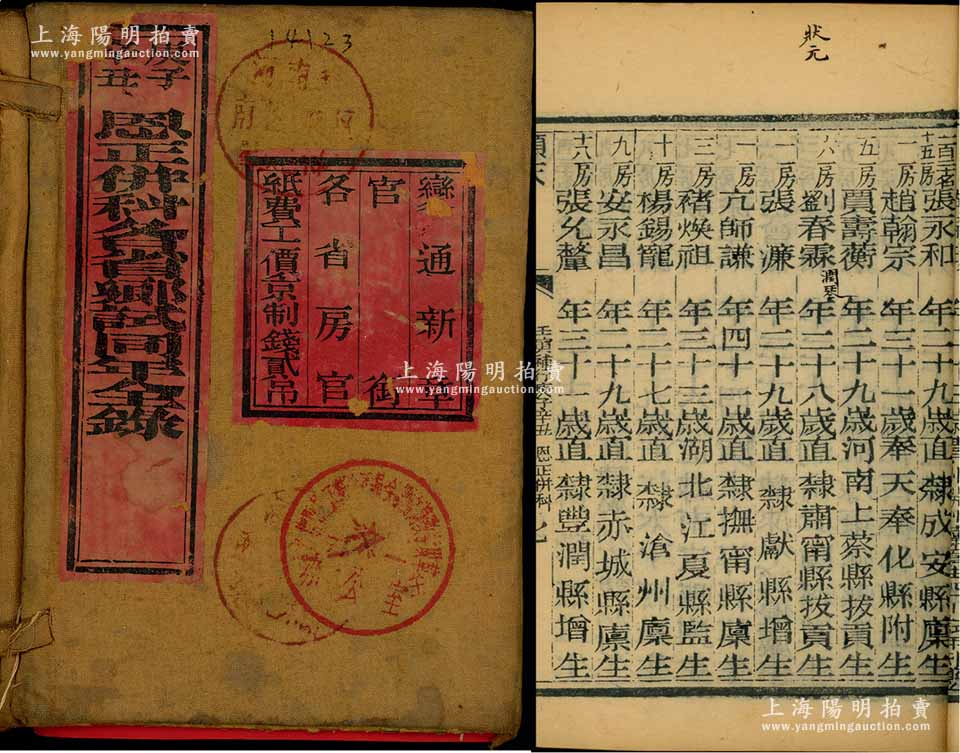 上海陽明拍卖
www.yangmingauction.com
庚子
辛丑
恩正併科各省鄉試同年全錄
14123
變通新章
官銜
各省房官
紙費工價京制錢貳吊
狀元
十五房張永和年二十九歲直隸成安縣廩生
一房趙翰宗年三十一歲奉天奉化縣附生
五房賈壽蘅年二十九歲河南上蔡縣拔貢
六房劉春霖年二十八歲直隸肅甯縣拔貢生
潤琴
一房張濂年二十九歲直隸獻縣增生
一房亢師謙年四十一歲直隸撫甯縣廩生
三房褚煥祖年三十三歲湖北江夏縣監生
十房楊錫寵年二十七歲直隸滄州廩生
九房安永昌年二十九歲直隸赤城縣廩生
十六房張允釐年三十一歲直隸豐潤縣增生
恩正併科
上海陽明拍卖
www.yangmingauction.com
上海陽明拍卖
www.yangmingauction.com